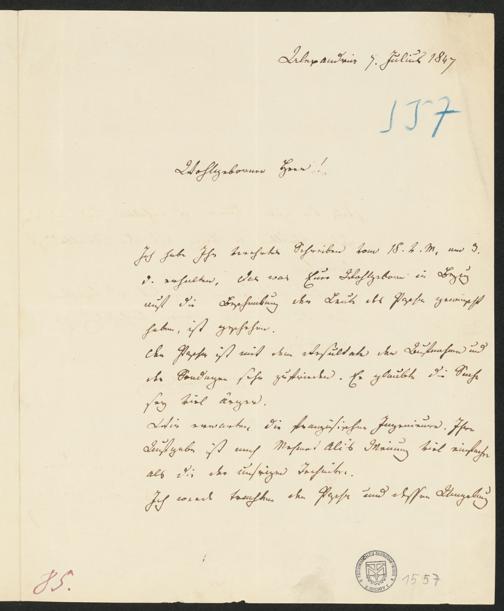 Alexandria 7. Julius 1847
157
Wohlgeborner Herr!
Ich habe Ihr verehrtes Schreiben vom 18. v. M. am 3.
d. erhalten, das was Euer Wohlgeborn in Bezug
auf die der Leute des Pascha gewünscht
haben, ist geschehen.
Der Pascha ist mit dem Resultate der Aufnahmen und
der Sondagen sehr zufrieden. Er glaubte die Sache
sey viel ärger.
Wir erwarten die französischen Ingenieure. Ihre
Aufgabe ist nach Mehmed Ali's Meinung viel einfacher
als die der unsrigen Techniker.
Ich werde trachten den Pascha und dessen Umgebung
85.
1557